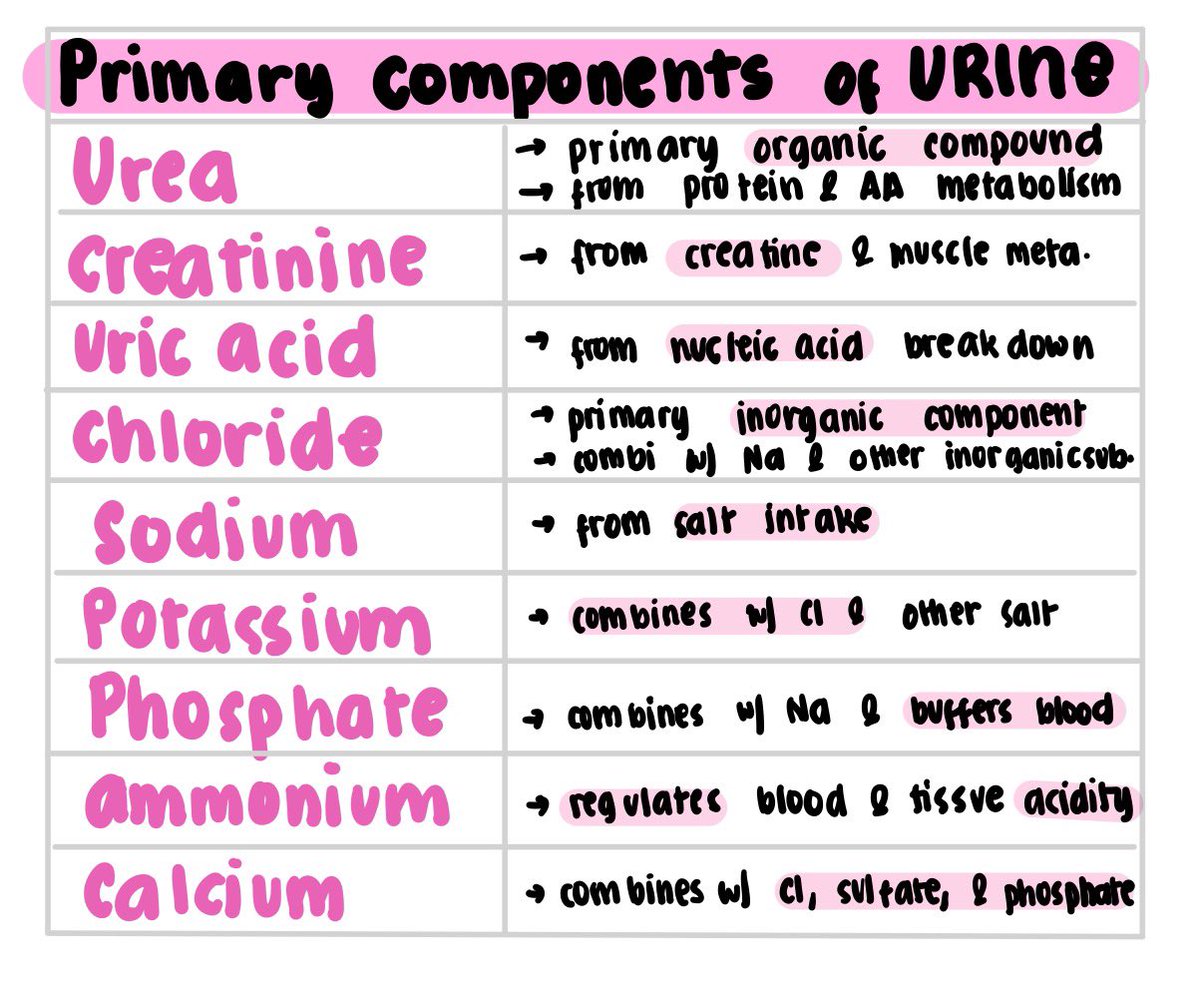 Primary Components of URINE
Urea
→ primary organic compound
→ from protein & AA metabolism
Creatinine
→ from creatine & muscle meta.
Uric acid
→ from nucleic acid breakdown
Chloride
→ primary inorganic component
→ combi w/ Na & other inorganic sub.
Sodium
→ from salt intake
Potassium
→ combines w/ Cl & other salt
Phosphate
→ combines w/ Na & buffers blood
Ammonium
→ regulates blood & tissue acidity
Calcium
→ combines w/ Cl, sulfate, & phosphate